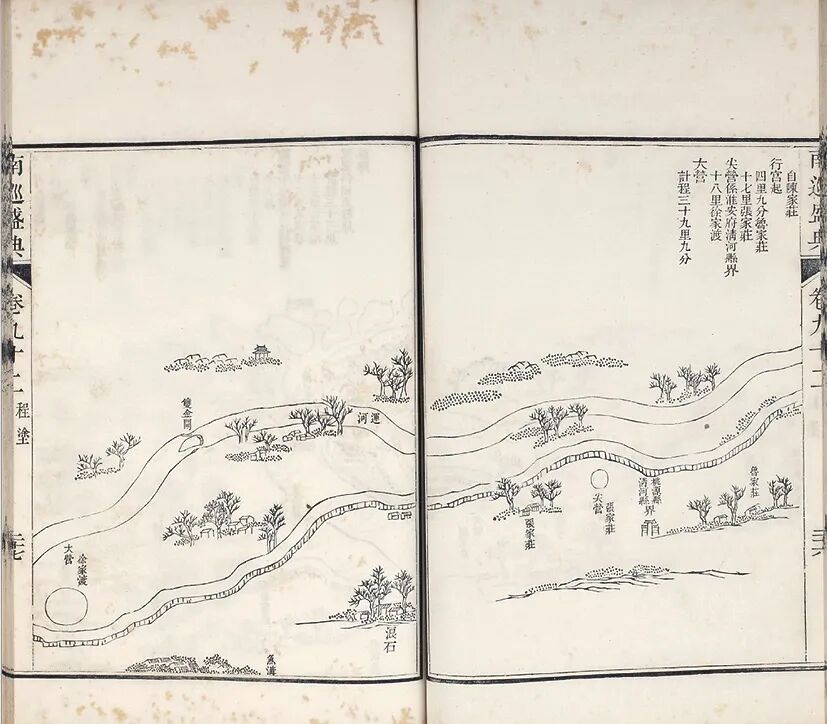 南巡盛典
卷九十二
自陳家莊
行宮起
四里九分魯家莊
十七里張家莊
尖營係淮安府清河縣界
十八里徐家渡
大營
計程三十九里九分
魯家莊
桃源縣
清河縣
界
張家莊
尖營
張家莊
運河
雙金閘
浪石
魚溝
徐家渡
大營
南巡盛典
卷九十二
程塗